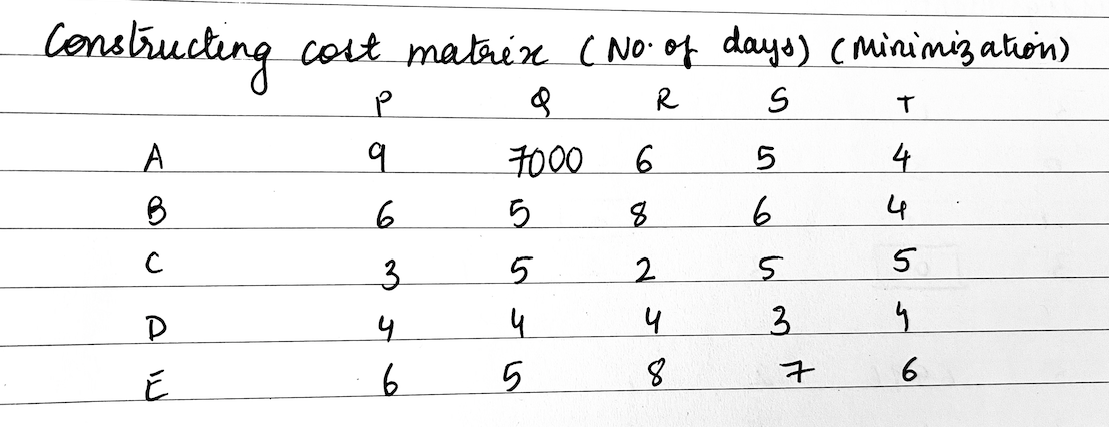 Constructing cost matrix (No. of days) (Minimization)
P Q R S T
A 9 7000 6 5 4
B 6 5 8 6 4
C 3 5 2 5 5
D 4 4 4 3 4
E 6 5 8 7 6